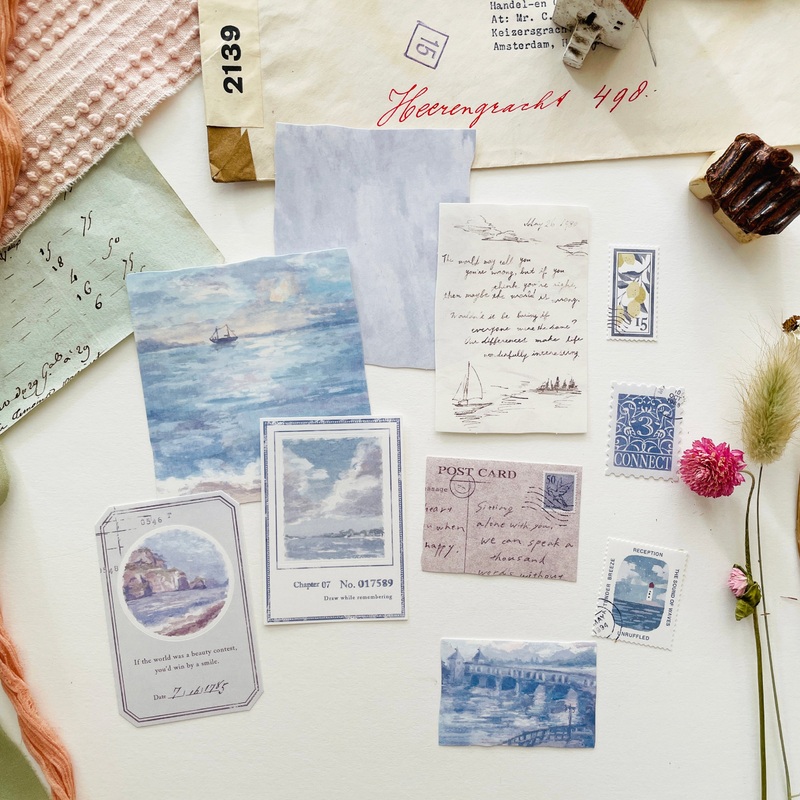 Handel-en
At: Mr. C.
Keizersgrach
Amsterdam, H
2139
15
Heerengracht 498.
75
15
18
50
4
16
6
May 26
The world may call you
you're wrong, but if you
think you're right,
then maybe the world is wrong.
Wouldn't it be boring if
everyone was the same?
Our differences make life
wonderfully interesting
15
3
CONNECT
POST CARD
50
ssage
eart
u when
happy.
Sitting
alone with you,
we can speak a
thousand
words without
Chapter 07 No. 017589
Draw while remembering
0546
If the world was a beauty contest,
you'd win by a smile.
Date
RECEPTION
NDER BREEZE
THE SOUND OF WAVES
UNRUFFLED